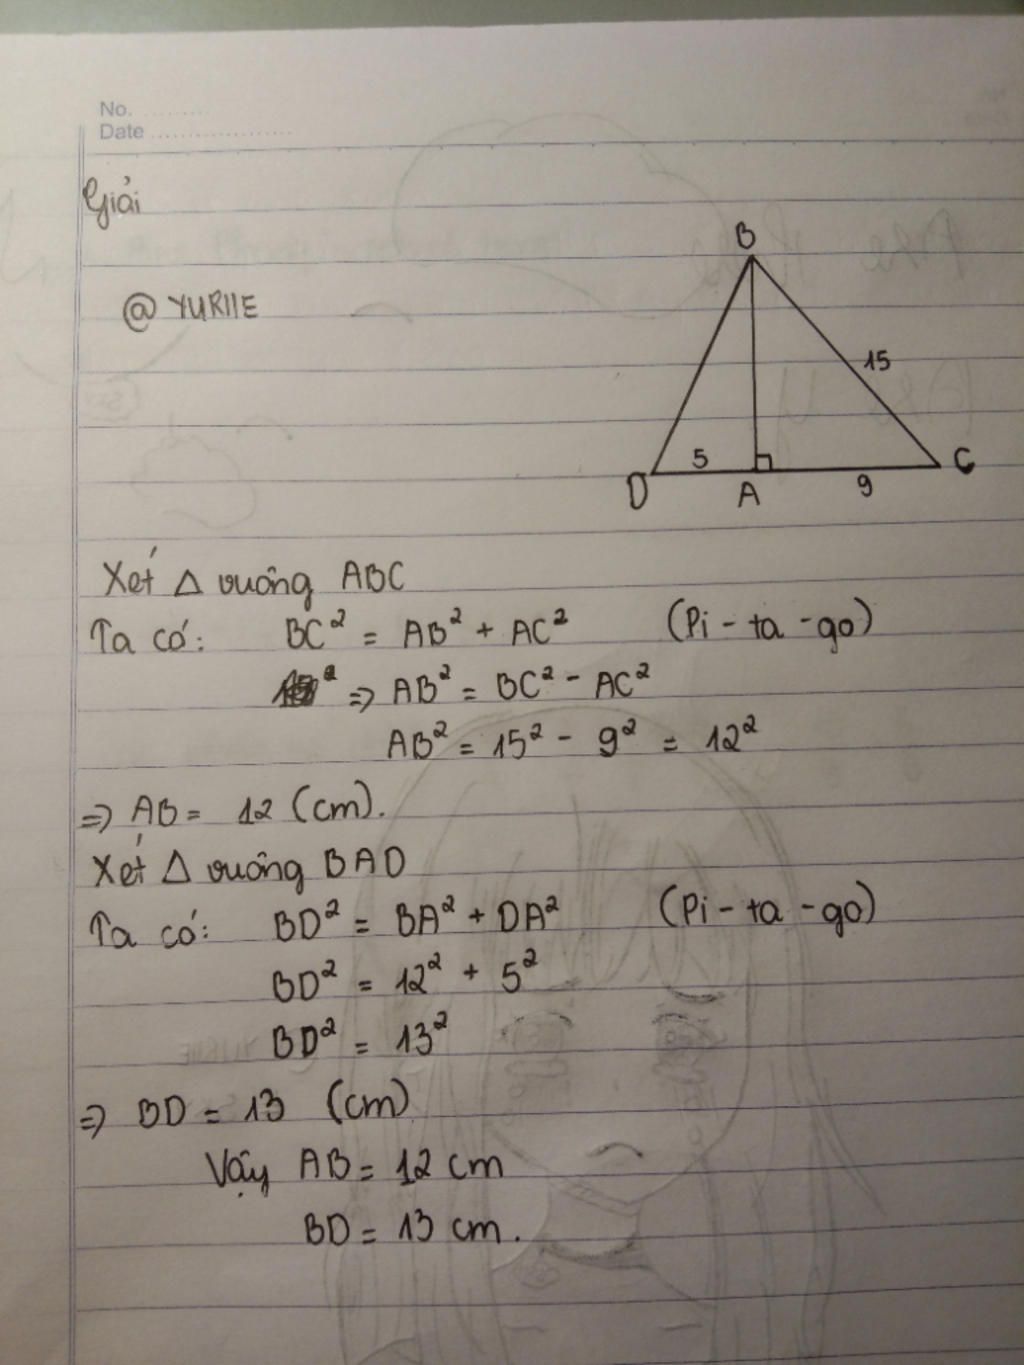 No.
Date
Giải
@ YURIIE
B
15
5
D
A
9
C
Xét Δ vuông ABC
Ta có: BC² = AB² + AC² (Pi - ta - go)
⇒ AB² = BC² - AC²
AB² = 15² - 9² = 12²
⇒ AB = 12 (cm).
Xét Δ vuông BAD
Ta có: BD² = BA² + DA² (Pi - ta - go)
BD² = 12² + 5²
BD² = 13²
⇒ BD = 13 (cm)
Vậy AB = 12 cm
BD = 13 cm.